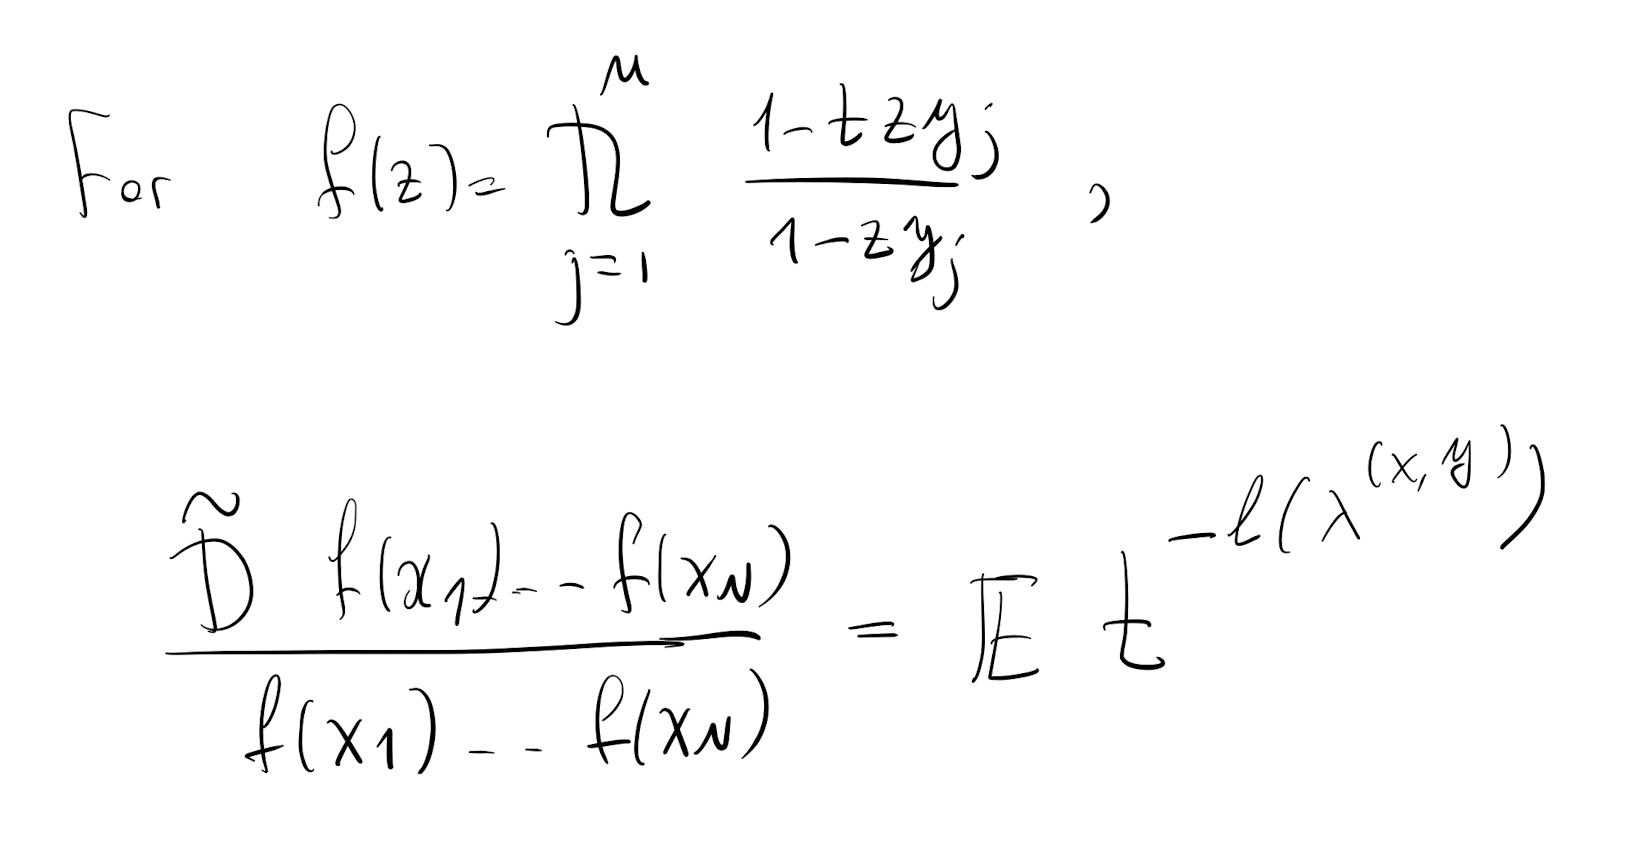 For $f(z) = \prod_{j=1}^{M} \frac{1 - t z y_j}{1 - z y_j}$ ,
$\frac{\tilde{D} f(x_1) \dots f(x_N)}{f(x_1) \dots f(x_N)} = \mathbb{E} t^{-\ell(\lambda^{(x,y)})}$